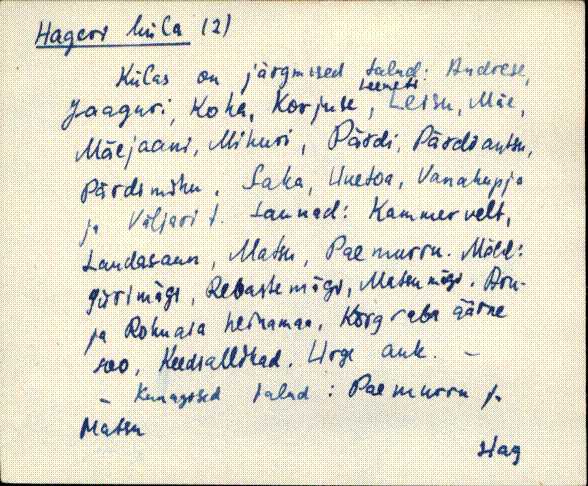 Hageri küla (2)
Külas on järgmised talud: Andrese,
Leemeti
Jaaguri, Koha, Korjuse, Leisu, Mäe,
Mäejaani, Mihuri, Pärdi, Pärdiantsu,
Pärdimihu, Saka, Uuetoa, Vanakupja
ja Väljari t. Saunad: Kammervelt,
Laudasaun, Matsu, Paemurru. Mäed:
mägi, Rebaste mägi, Matsu mägi.
ja Rohuaia heinamaa, Kõrgraba äärne
soo, Keedsallikad. Urge auk. –
– Kunagised talud: Paemurru ja
Matsu
Hag